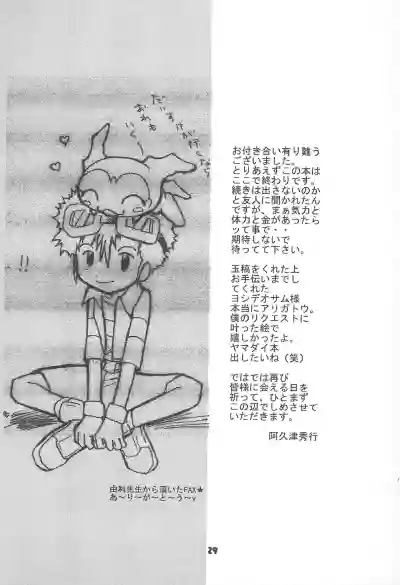 だいすけが行くなら
おれも
いく
!!
お付き合い有り難う
ございました。
とりあえずこの本は
ここで終わりです。
続きは出さないのか
と友人に聞かれたん
ですが、まぁ気力と
体力と金があったら
ッて事で・・
期待しないで
待ってて下さい。
玉稿をくれた上
お手伝いまでし
てくれた
ヨシデオサム様
本当にアリガトウ。
僕のリクエストに
叶った絵で
嬉しかったよ。
ヤマダイ本
出したいね(笑)
ではでは再び
皆様に会える日を
祈って、ひとまず
この辺でしめさせて
いただきます。
阿久津秀行
由利先生から頂いたFAX★
あ~り~が~と~う~v
29